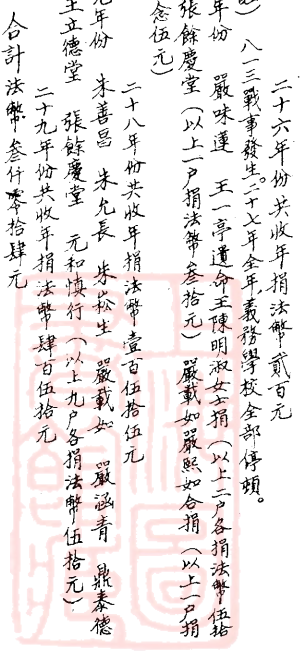 二十六年份共收年捐法幣貳百元
八一三戰事發生。二十七年全年,義務學校全部停頓。
年份 嚴味蓮 王一亭遺命王陳明淑女士捐(以上二户各捐法幣伍拾
張餘慶堂(以上一户捐法幣叁拾元) 嚴載如嚴熙如合捐(以上一户捐
念伍元)
二十八年份共收年捐法幣壹百伍拾伍元
元年份 朱善昌 朱允長 朱松生 嚴載如 嚴涵青 鼎泰德
王立德堂 張餘慶堂 元和慎行(以上九户各捐法幣伍拾元)
二十九年份共收年捐法幣肆百伍拾元
合計法幣叁仟零拾肆元